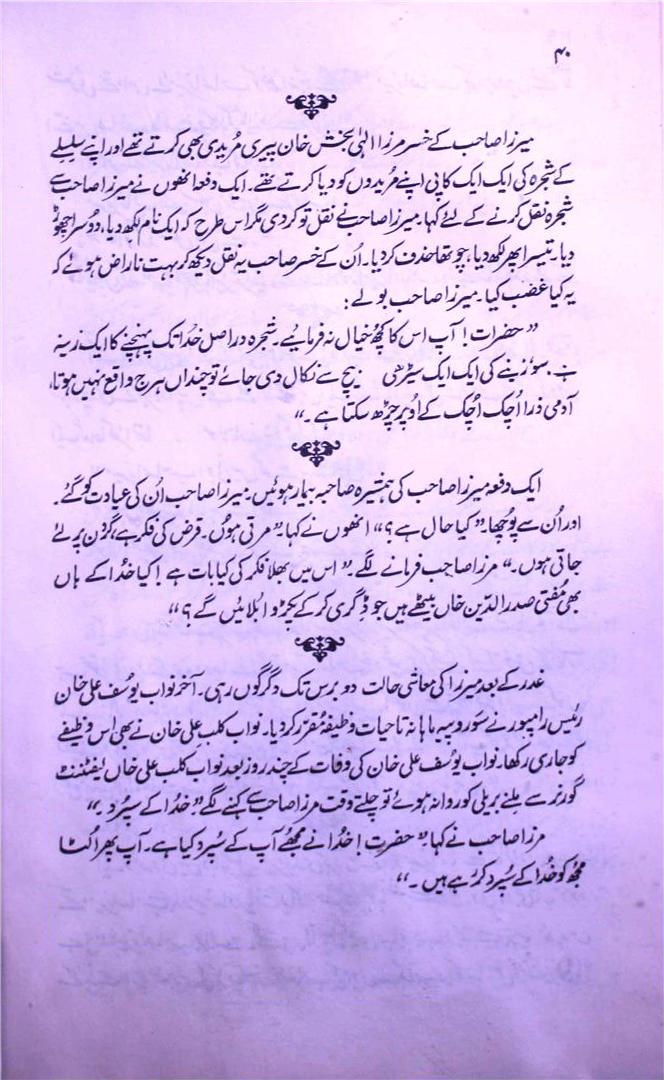 ۴۰
میرزا صاحب کے خسر مرزا الٰہی بخش خان پیری مُریدی بھی کرتے تھے اور اپنے سلسلے
کے شجرہ کی ایک ایک کاپی اپنے مریدوں کو دیا کرتے تھے۔ ایک دفعہ انھوں نے میرزا صاحب سے
شجرہ نقل کرنے کے لئے کہا۔ میرزا صاحب نے نقل تو کر دی مگر اس طرح کہ ایک نام لکھ دیا، دوسرا چھوڑ
دیا۔ تیسرا پھر لکھ دیا، چوتھا حذف کر دیا۔ اُن کے خسر صاحب یہ نقل دیکھ کر بہت ناراض ہوئے کہ
یہ کیا غضب کیا۔ میرزا صاحب بولے:
”حضرات! آپ اس کا کچھ خیال نہ فرمائیے۔ شجرہ دراصل خُدا تک پہنچنے کا ایک زینہ
ہے۔ سو زینے کی ایک ایک سیڑھی بیچ سے نکال دی جائے تو چنداں ہرج واقع نہیں ہوتا،
آدمی ذرا اُچک اُچک کے اُوپر چڑھ سکتا ہے۔“
ایک دفعہ میرزا صاحب کی ہمشیرہ صاحبہ بیمار ہوئیں۔ میرزا صاحب اُن کی عیادت کو گئے۔
اور اُن سے پُوچھا۔ ”کیا حال ہے؟“ انھوں نے کہا۔ ”مرتی ہوُں۔ قرض کی فکر ہے، گردن پر لئے
جاتی ہوں۔“ مرزا صاحب فرمانے لگے۔ ”اس میں بھلا فکر کی کیا بات ہے! کیا خُدا کے ہاں
بھی مُفتی صدر الدّین خاں بیٹھے ہیں جو ڈِگری کر کے پکڑوا بُلائیں گے؟“
غدر کے بعد میرزا کی معاشی حالت دو برس تک دگرگوں رہی۔ آخر نواب یُوسف علی خان
رئیس رامپور نے سَو روپیہ ماہانہ تا حیات وظیفہ مُقرّر کر دیا۔ نواب کلب علی خان نے بھی اس وظیفے
کو جاری رکھا۔ نواب یُوسف علی خان کی وفات کے چند روز بعد نواب کلب علی خاں لیفٹننٹ
گورنر سے ملنے بریلی کو روانہ ہوئے تو چلتے وقت مرزا صاحب سے کہنے لگے ”خُدا کے سپُرد۔“
مرزا صاحب نے کہا۔ ”حضرت! خُدا نے مجھُے آپ کے سپُرد کیا ہے۔ آپ پھر اُلٹا
مجھ کو خُدا کے سپُرد کر رہے ہیں۔“